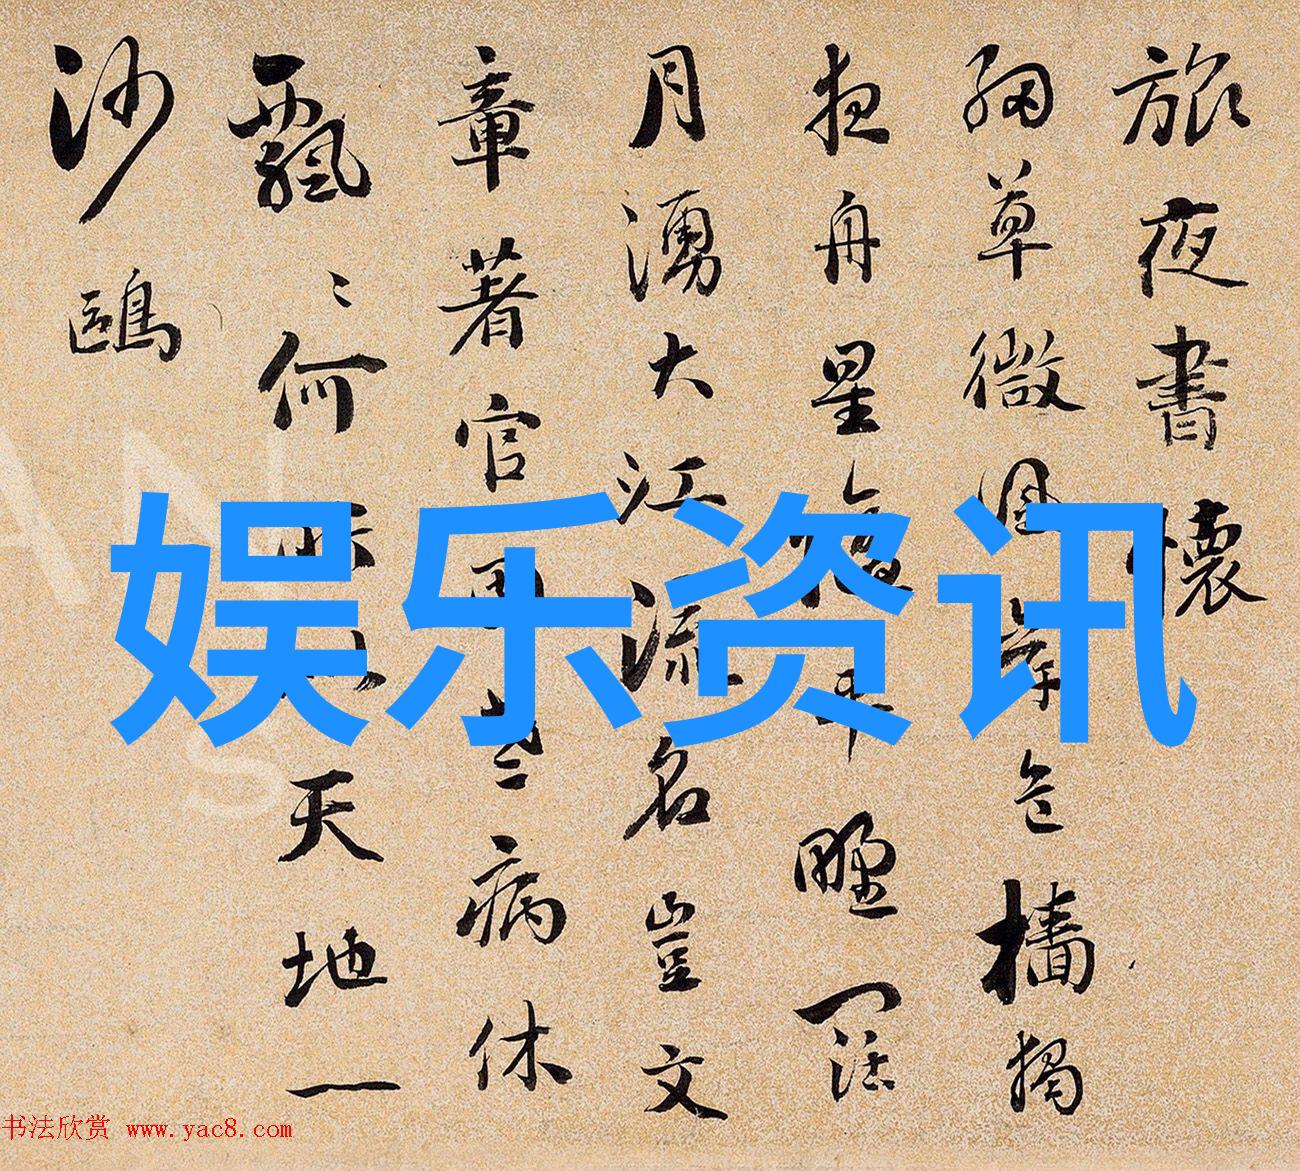 旅夜書懷
細草微風岸危檣獨
夜舟星隨平野闊
月湧大江流名豈文
章著官因老病休
飄〻何所似天地一
沙鷗
娱乐资讯
书法欣赏 www.yac8.com